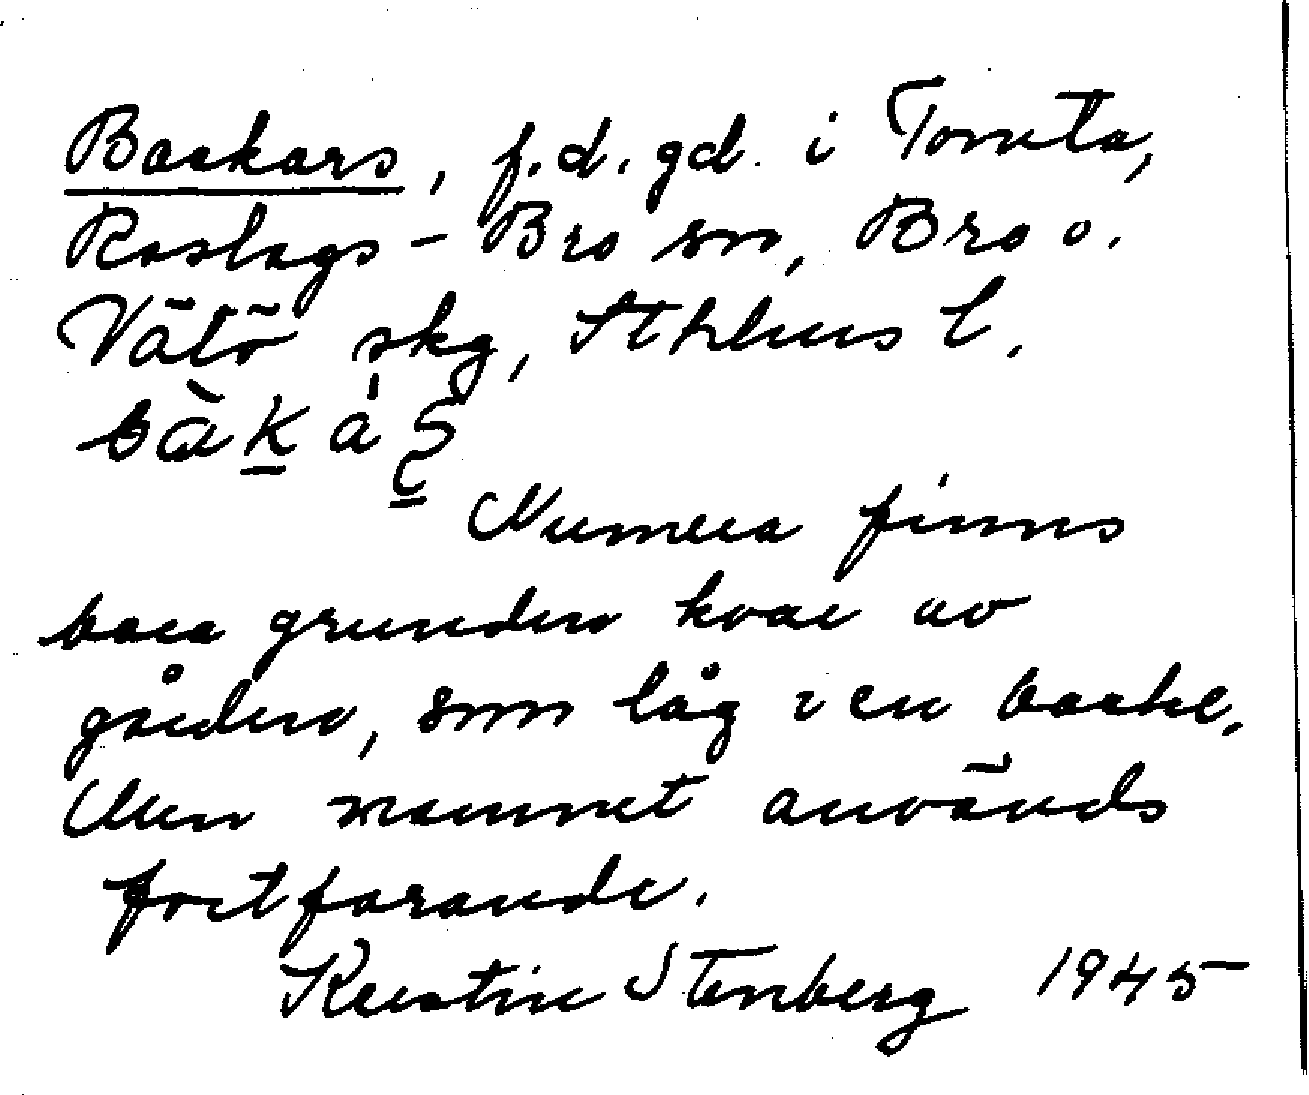 Backars, f.d. gd. i Tomta,
Roslags-Bro sn, Bro o.
Vätö skg, Sthlms l.
Numera finns
bara grunden kvar av
gården, som låg i en backe.
Men namnet används
fortfarande.
Kerstin Stenberg 1945